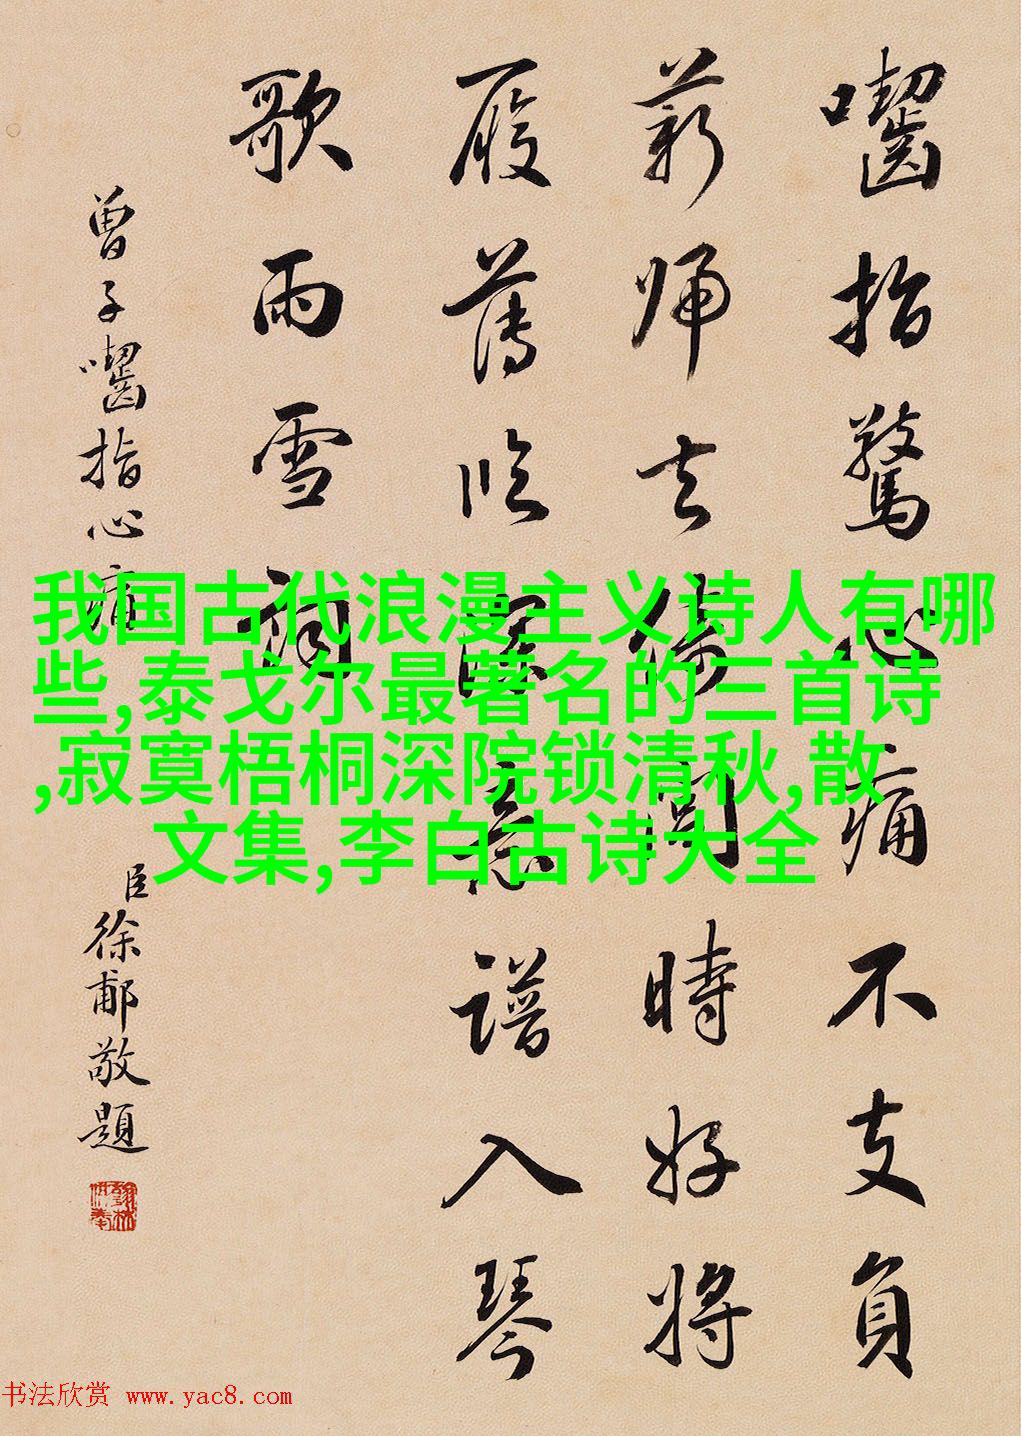 囓指驚心痛不支負
薪歸去倚閭時好將
履薄臨深意譜入琴
歌雨雪詞
曾子囓指心痛
臣徐郙敬題
我国古代浪漫主义诗人有哪
些,泰戈尔最著名的三首诗
,寂寞梧桐深院锁清秋,散
文集,李白古诗大全
书法欣赏 www.yac8.com